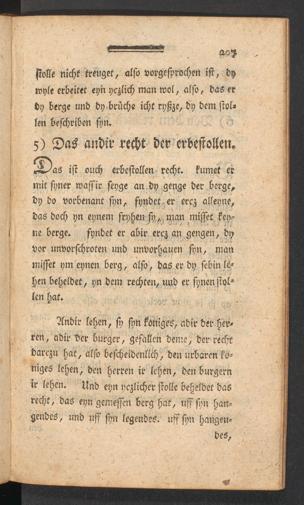 207
stolle nicht treuget, also vorgesprochen ist, dy
wyle erbeitet eyn yczlich man wol, also, das er
dy berge und dy brüche icht ryßze, dy dem stol-
len beschriben syn.
5) Das andir recht der erbestollen.
Das ist ouch erbestollen recht. kumet er
mit syner wassir seyge an dy genge der berge,
dy do vorbenant syn, fyndet er ercz alleyne,
das doch yn eynem fryhen sy, man misset key-
ne berge. fyndet er abir ercz an gengen, dy
vor unvorschroten und unvorhauen syn, man
misset ym eynen berg, also, das er dy sebin le-
hen beheldet, yn dem rechten, und er synen stol-
len hat.
Andir lehen, sy syn koniges, adir der her-
ren, adir der burger, gefallen deme, der recht
darczu hat, also bescheidenlich, den urbaren ko-
niges lehen, den herren ir lehen, den burgern
ir lehen. Und eyn yczlicher stolle beheldet das
recht, das eyn gemessen berg hat, uff syn han-
gendes, und uff syn legendes. uff syn hangen-
des,